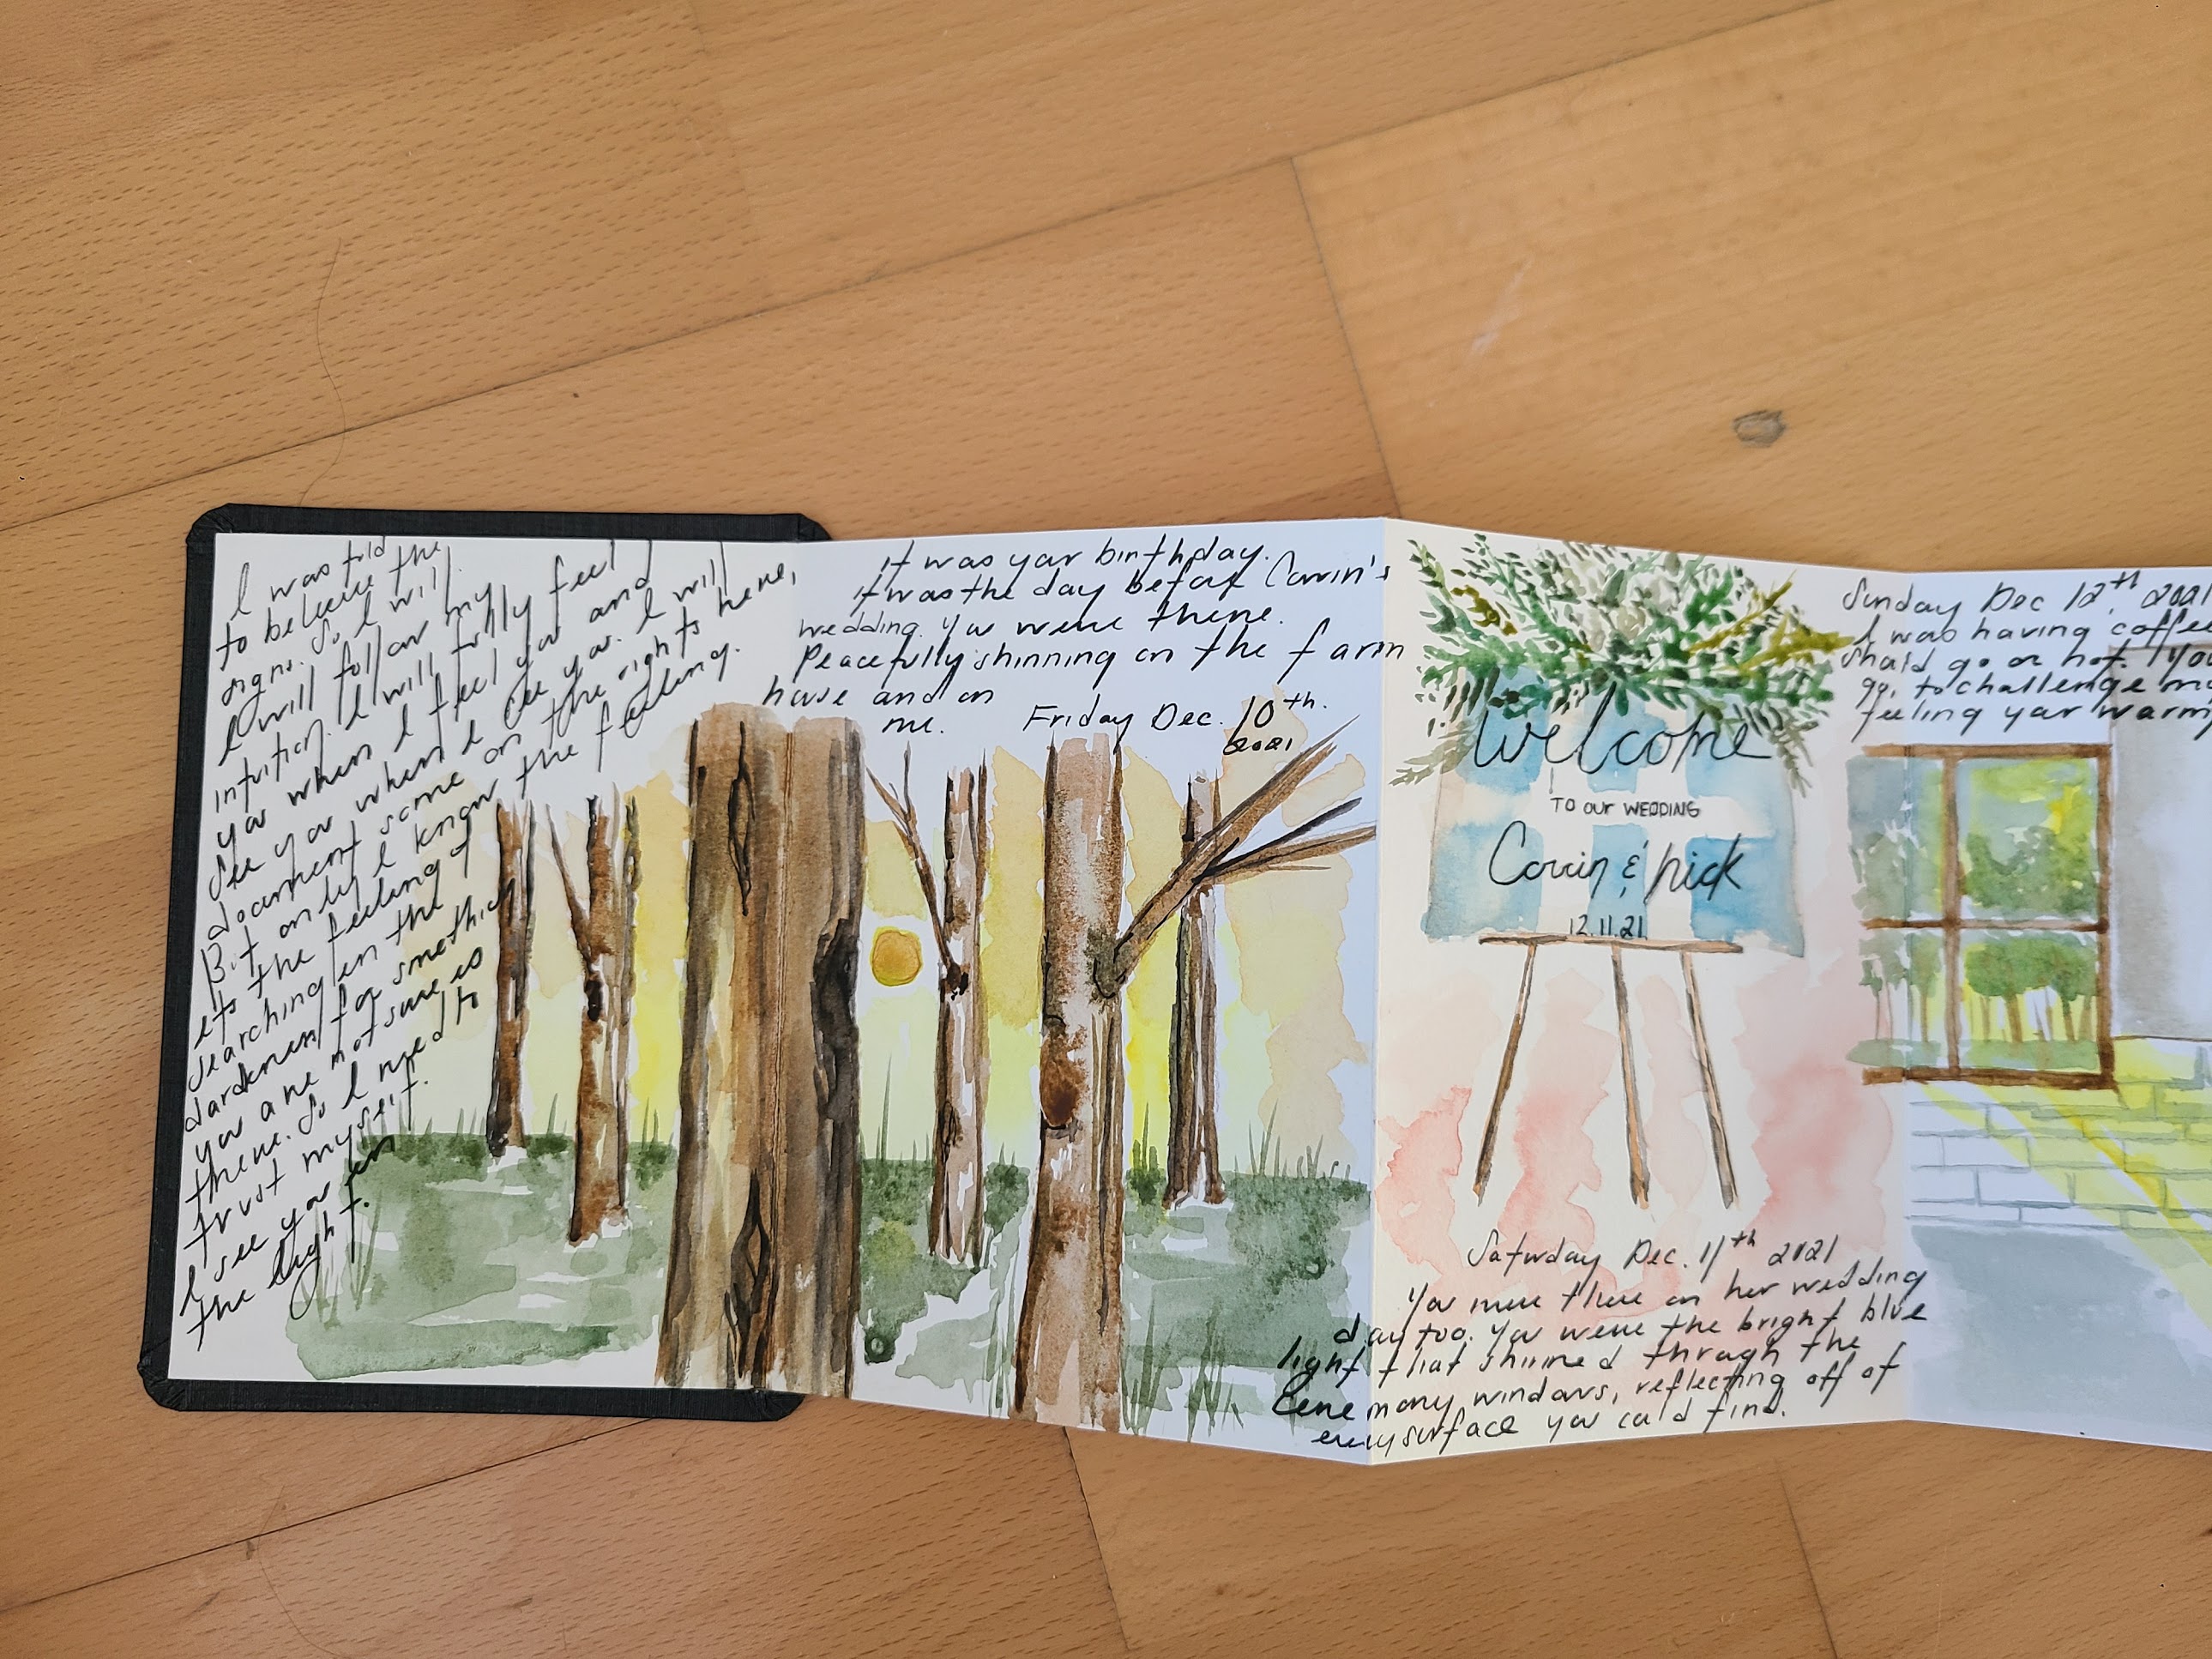 I was told
to believe the
signs. So I will.
I will follow my
intuition. I will fully feel
you when I feel you and
See you when I see you. I will
document some on the right here,
But only I know the feeling.
its the feeling of
searching in the
darkness for something
you are not sure is
there. So I need to
trust myself.
I see you in
the light.
it was your birthday.
it was the day before Corrin's
wedding. you were there.
Peacefully shinning on the farm
house and on
me.
Friday Dec. 10th.
2021
Welcome
TO OUR WEDDING
Corrin & nick
12.11.21
Saturday Dec. 11th 2021
You were there on her wedding
day too. You were the bright blue
light that shinned through the
Ceremony windows, reflecting off of
every surface you could find.
Sunday Dec 12th, 2021
I was having coffee
should go or not. You
go, to challenge
feeling your warm